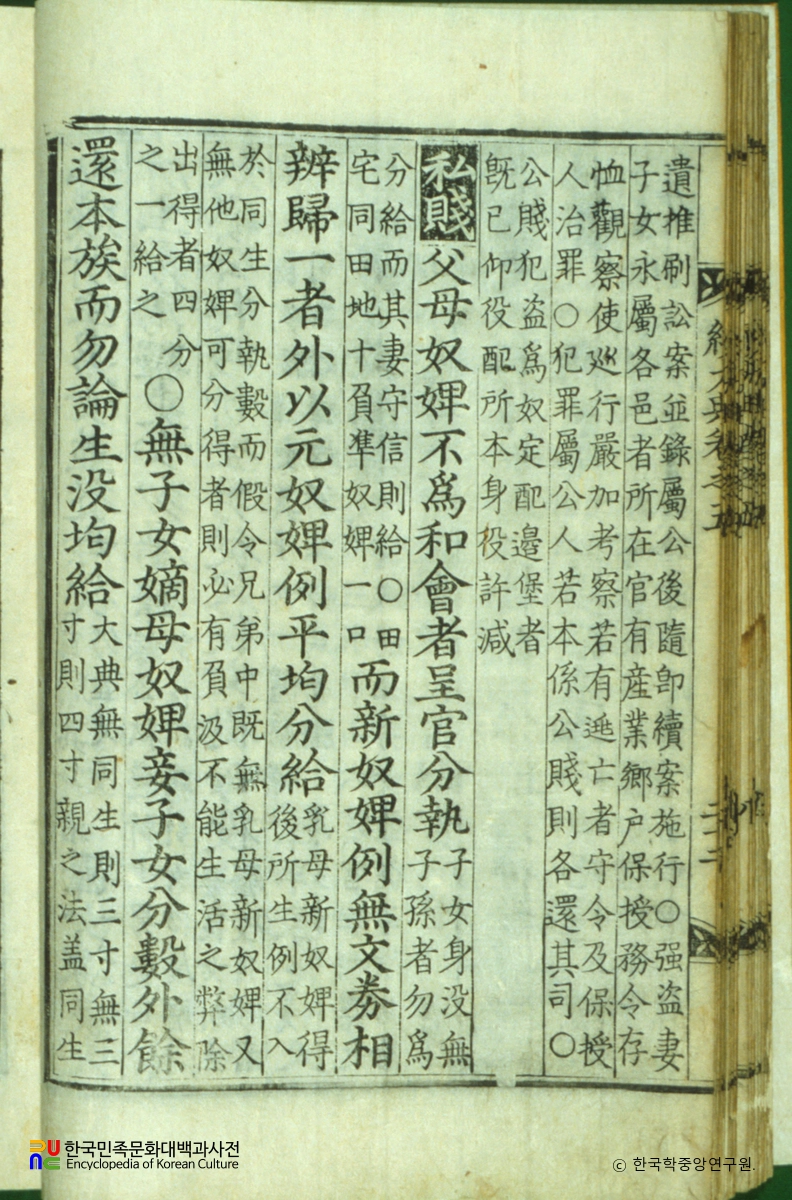 遺推刷訟案並錄屬公後隨卽續案施行○强盜妻
子女永屬各邑者所在官有産業鄕戶保授務令存
恤觀察使巡行嚴加考察若有逃亡者守令及保授
人治罪○犯罪屬公人若本係公賤則各還其司○
公賤犯盜爲奴定配邊堡者
旣已仰役配所本身役許減
私賤父母奴婢不爲和會者呈官分執
子女身没無
子孫者勿爲
分給而其妻守信則給○田
宅同田地十負準奴婢一口
而新奴婢例無文券相
辨歸一者外以元奴婢例平均分給
乳母新奴婢得
後所生例不入
於同生分執數而假令兄弟中既無乳母新奴婢又
無他奴婢可分得者則必有負汲不能生活之弊除
出得者四分
之一給之
○無子女嫡母奴婢妾子女分數外餘
還本族而勿論生没均給
大典無同生則三寸無三
寸則四寸親之法盖同生
한국민족문화대백과사전
Encyclopedia of Korean Culture
© 한국학중앙연구원.